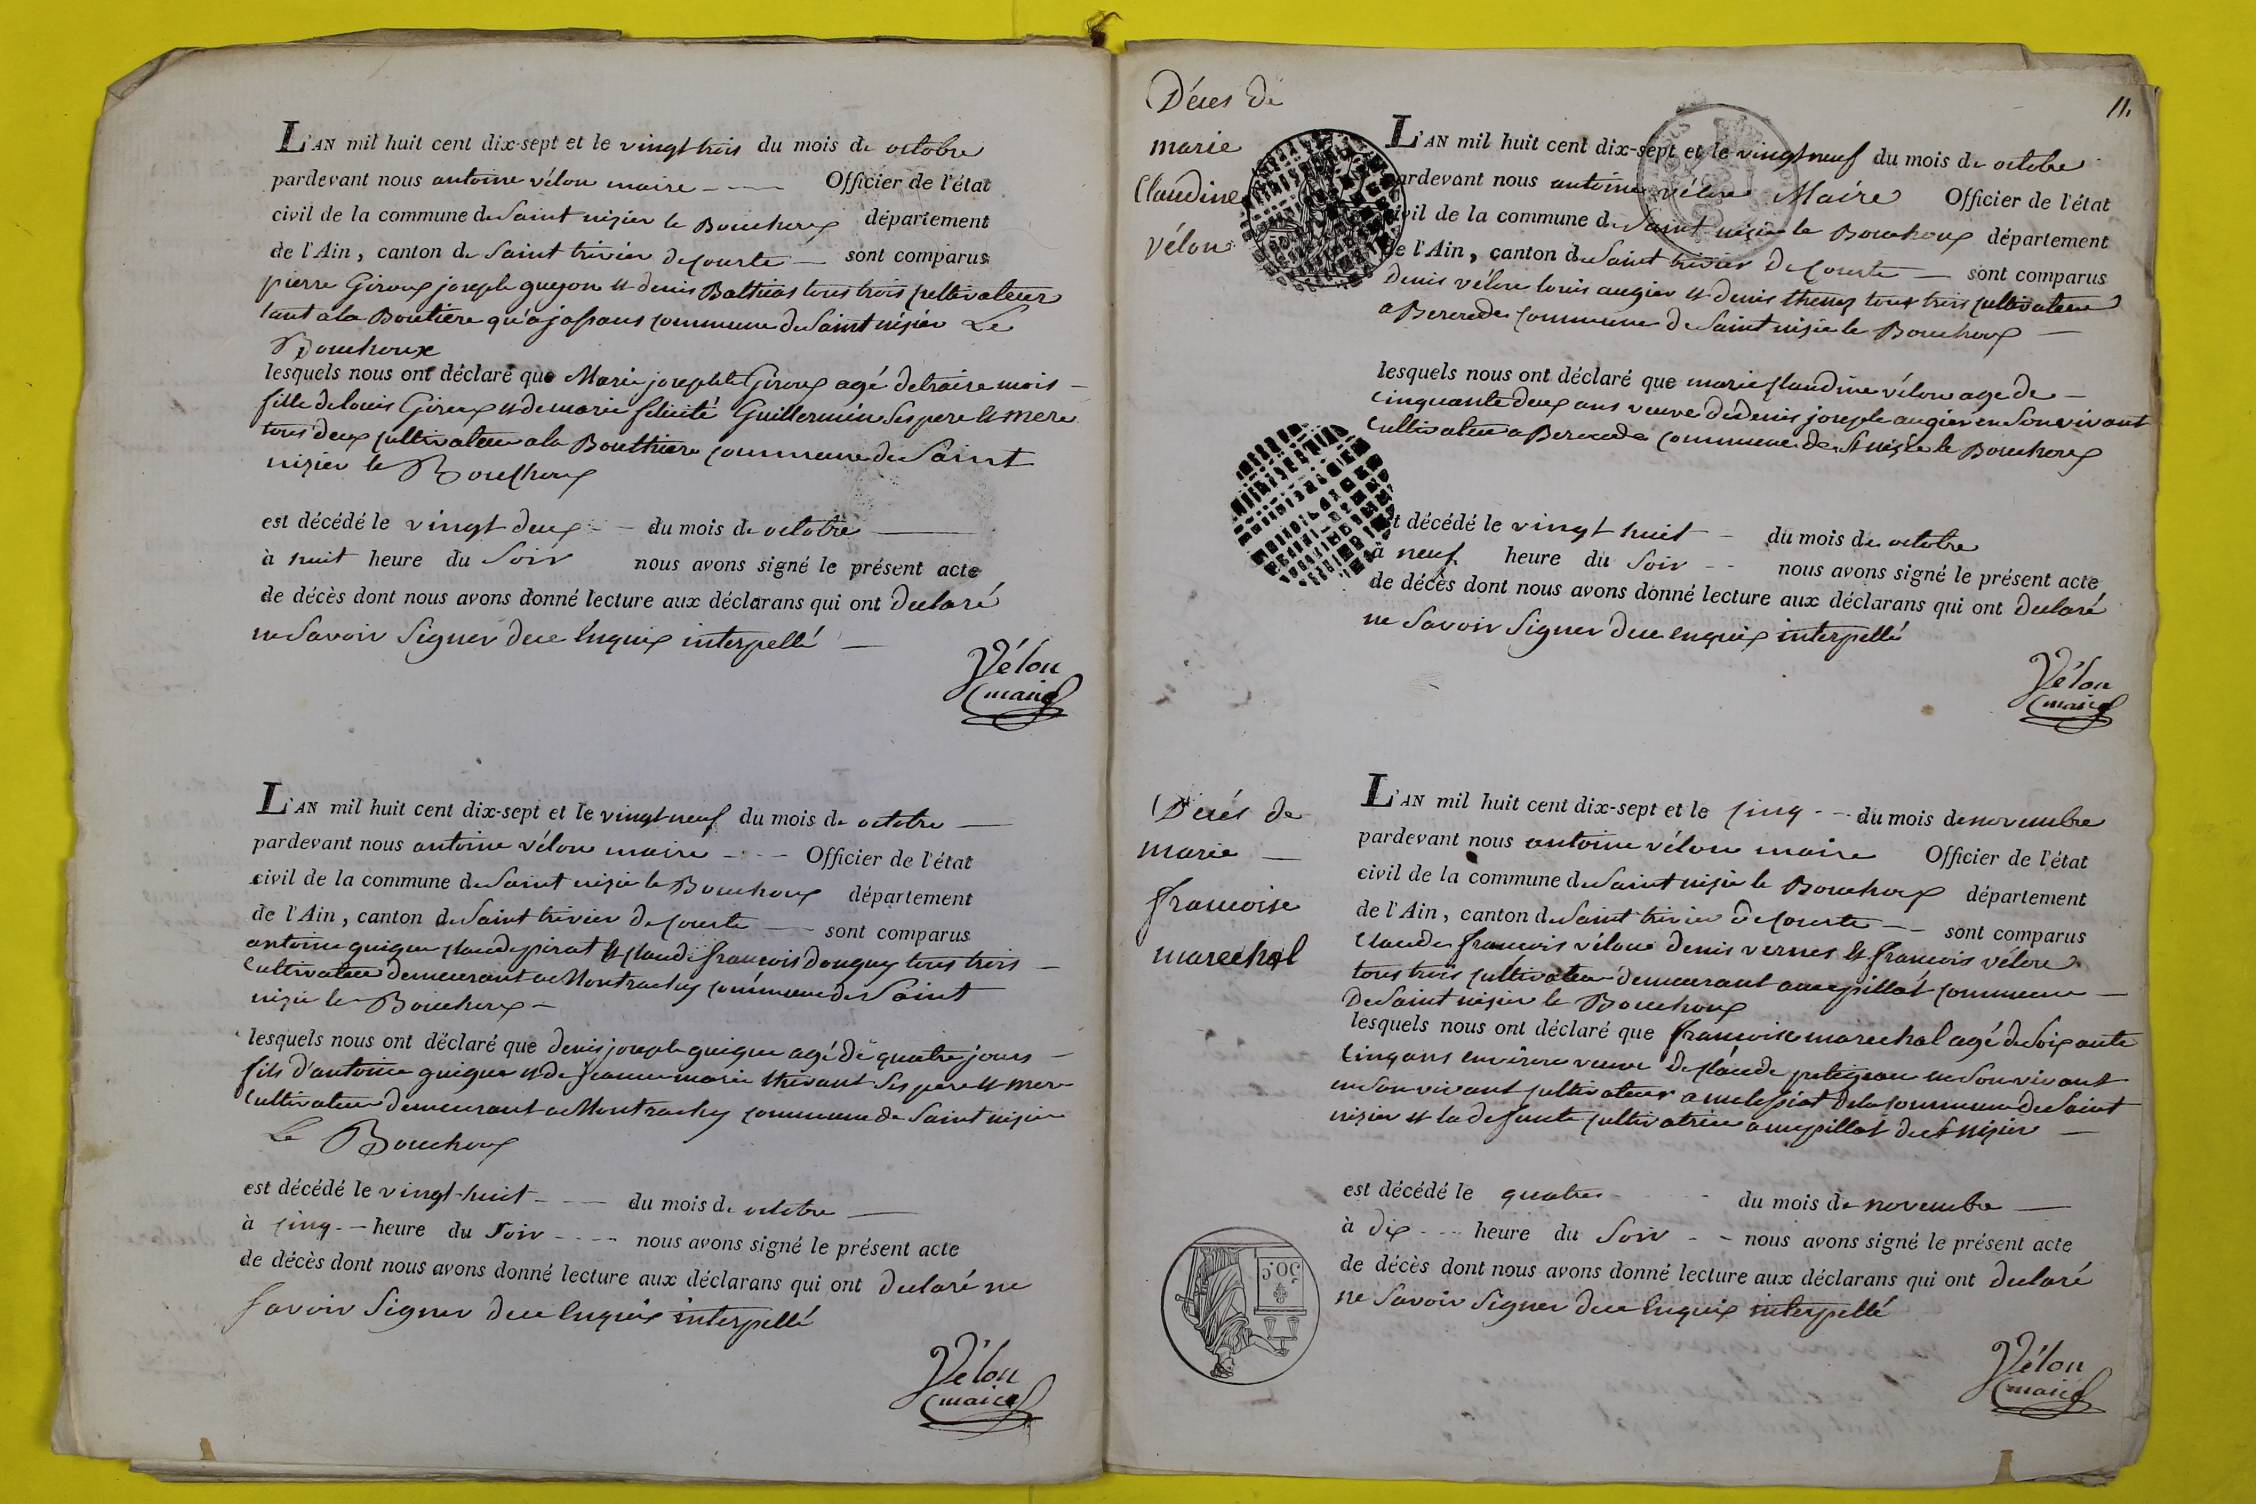 L'AN mil huit cent dix-sept et le vingt trois du mois de octobre
pardevant nous antoine vélon maire Officier de l'état
civil de la commune de Saint nizier le Bouchoux département
de l'Ain, canton de Saint trivier de courte sont comparus
pierre Giroux joseph guyon et denis Bathias tous trois cultivateur
tant a la Boutiere qu'a commune de Saint nizier Le
Bouchoux
lesquels nous ont déclaré que Marie josephte Giroux agé de traize mois
fille de louis Giroux et de marie felicité Guillermin ses pere et mere
tous deux cultivateur a la Bouthiere commune de Saint
nizier le Bouchoux
est décédé le vingt deux du mois de octobre
à huit heure du Soir nous avons signé le présent acte
de décès dont nous avons donné lecture aux déclarans qui ont declaré
ne Savoir Signer de ce enquix interpellé
Vélon
maire
L'AN mil huit cent dix-sept et le vingt neuf du mois de octobre
pardevant nous antoine vélon maire Officier de l'état
civil de la commune de Saint nizie le Bouchoux département
de l'Ain, canton de Saint trivier de courte sont comparus
antoine guigue claude pirat et claude françois douguy tous trois
cultivateur demeurant a Montrachy commune de Saint
nizie le Bouchoux
lesquels nous ont déclaré que denis joseph guigue agé de quatre jours
fils d'antoine guigue et de jeanne marie thevant ses pere et mere
cultivateur demeurant a Montrachy commune de Saint nizier
Le Bouchoux
est décédé le vingt-huit du mois de octobre
à cinq heure du Soir nous avons signé le présent acte
de décès dont nous avons donné lecture aux déclarans qui ont declaré ne
Savoir Signer de ce enquix interpellé
Vélon
maire
11.
Décés de
marie
Claudine
vélon
L'AN mil huit cent dix-sept et le vingt neuf du mois de octobre
pardevant nous antoine vélon Maire Officier de l'état
civil de la commune de Saint nizie le Bouchoux département
de l'Ain, canton de Saint trivier de Courte sont comparus
Denis vélon louis augier et denis tous trois cultivateur
a Bererede commune de Saint nizie le Bouchoux
lesquels nous ont déclaré que marie claudine vélon age de
cinquante deux ans veuve de denis joseph augier en Son vivant
Cultivateur a Bererede commune de St nizie le Bouchoux
est décédé le vingt huit du mois de octobre
à neuf heure du Soir nous avons signé le présent acte
de décès dont nous avons donné lecture aux déclarans qui ont declaré
ne Savoir Signer de ce enquix interpellé
Vélon
maire
Décés de
marie
francoise
marechal
L'AN mil huit cent dix-sept et le cinq du mois de novembre
pardevant nous antoine vélon maire Officier de l'état
civil de la commune de Saint nizie le Bouchoux département
de l'Ain, canton de Saint trivier de Courte sont comparus
Claude francois vélon denis vernes et francois vélon
tous trois cultivateur demeurant a commune
De Saint nizier le Bouchoux
lesquels nous ont déclaré que francoise marechal agé de Soixante
Cinq ans environ veuve de claude en Son vivant
en Son vivant cultivateur a de la commune de Saint
nizier et la defunte cultivatrice a de St nizier
est décédé le quatre du mois de novembre
à dix heure du Soir nous avons signé le présent acte
de décès dont nous avons donné lecture aux déclarans qui ont declaré
ne Savoir Signer de ce enquix interpellé
50 C.
Vélon
maire